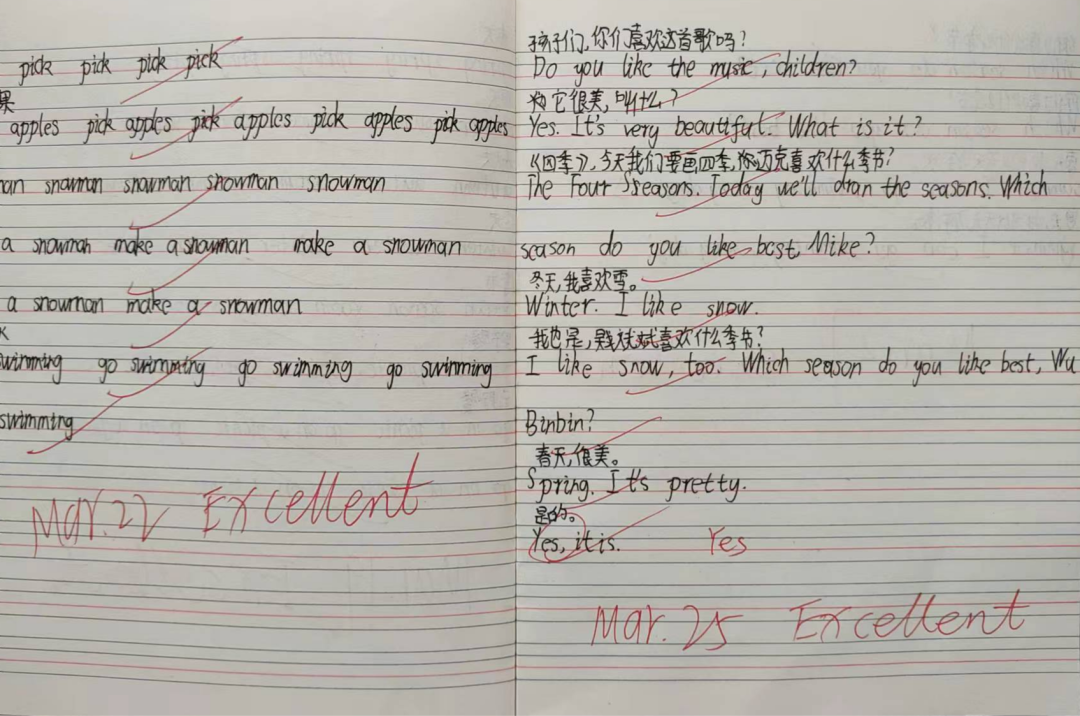 pick pick pick pick
果
apples pick apples pick apples pick apples pick apples
an snowman snowman snowman snowman
a snowman make a snowman make a snowman
a snowman make a snowman
swimming go swimming go swimming go swimming
swimming
Mar.22 Excellent
孩子们,你们喜欢这首歌吗?
Do you like the music, children?
它很美,叫什么?
Yes. It's very beautiful. What is it?
《四季》,今天我们要画四季,你迈克喜欢什么季节?
The Four Sseasons. Today we'll dran the seasons. Which
season do you like best, Mike?
冬天,我喜欢雪。
Winter. I like snow.
我也是,吴斌斌喜欢什么季节?
I like snow, too. Which season do you like best, Wu
Binbin?
春天,很美。
Spring. It's pretty.
是的。
Yes, it is. Yes
Mar.25 Excellent